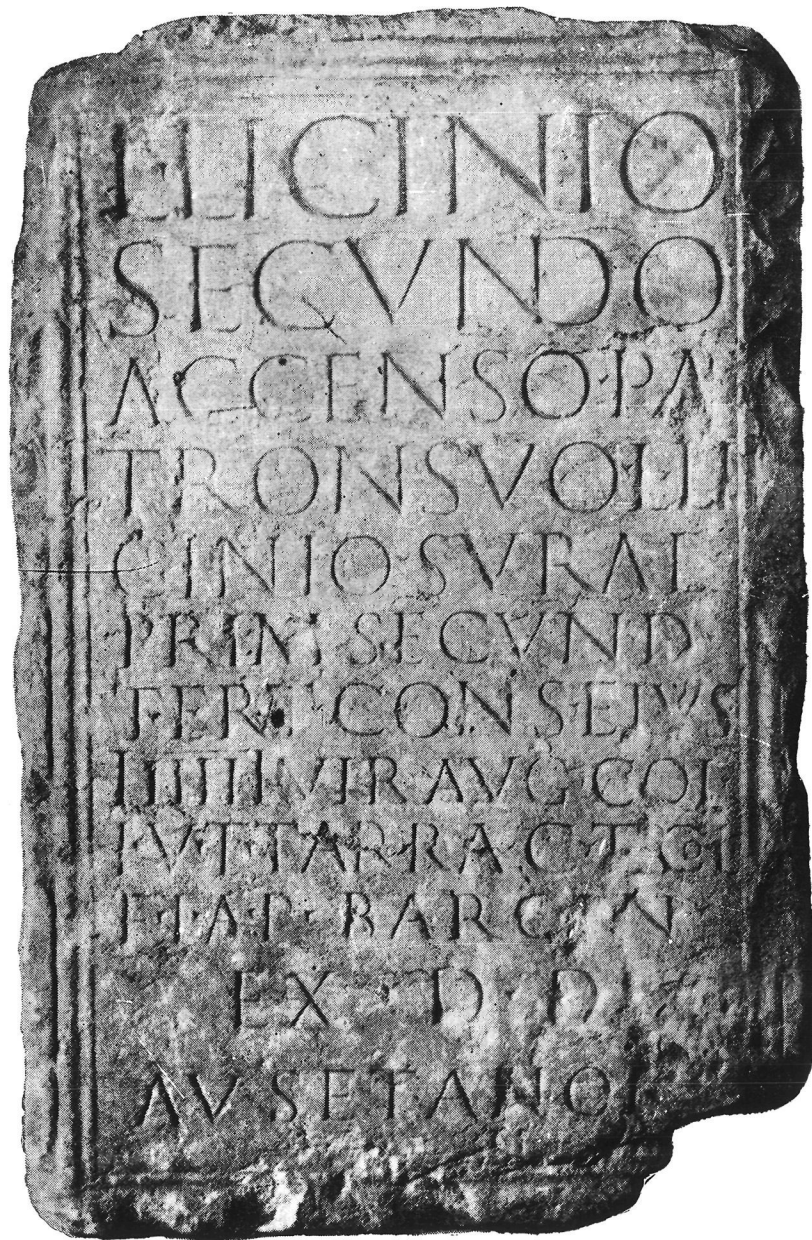 L LICINIO
SECVNDO
ACCENSO PA
TRON SVO L LI
CINIO SVRAE
PRIM SECVND
TERT CONSEIVS
IIIIII VIR AVG COL
I V T TARRAC ET COL
F I A P BARCIN
EX D D
AVSETANOR